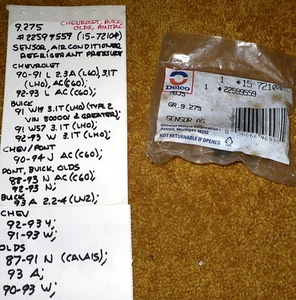 9.275
CHEVROLET, BUICK,
OLDS, PONTIAC
#22599559 (15-72104)
SENSOR, AIR CONDITIONER
REFRIGERANT PRESSURE
CHEVROLET
90-91 L 2.3A (LG0), 3.1T
(LH0), AC(C60);
92-93 L AC(C60);
BUICK
91 W19 3.1T (LH0) (TYPE 2,
VIN 800001 & GREATER);
91 W57 3.1T (LH0);
92-93 W 3.1T (LH0);
CHEV/PONT
90-94 J AC(C60);
PONT, BUICK, OLDS
88-93 N AC(C60);
92-93 N;
BUICK
93 A 2.2-4 (LN2);
CHEV
92-93 4;
91-93 W;
OLDS
87-91 N (CALAIS);
93 A;
90-93 W;
AC
Delco
1 *15-72104
1 *22599559
GR.9.275
SENSOR AS
Detroit, Michigan 48202
NOT RETURNABLE IF OPENED